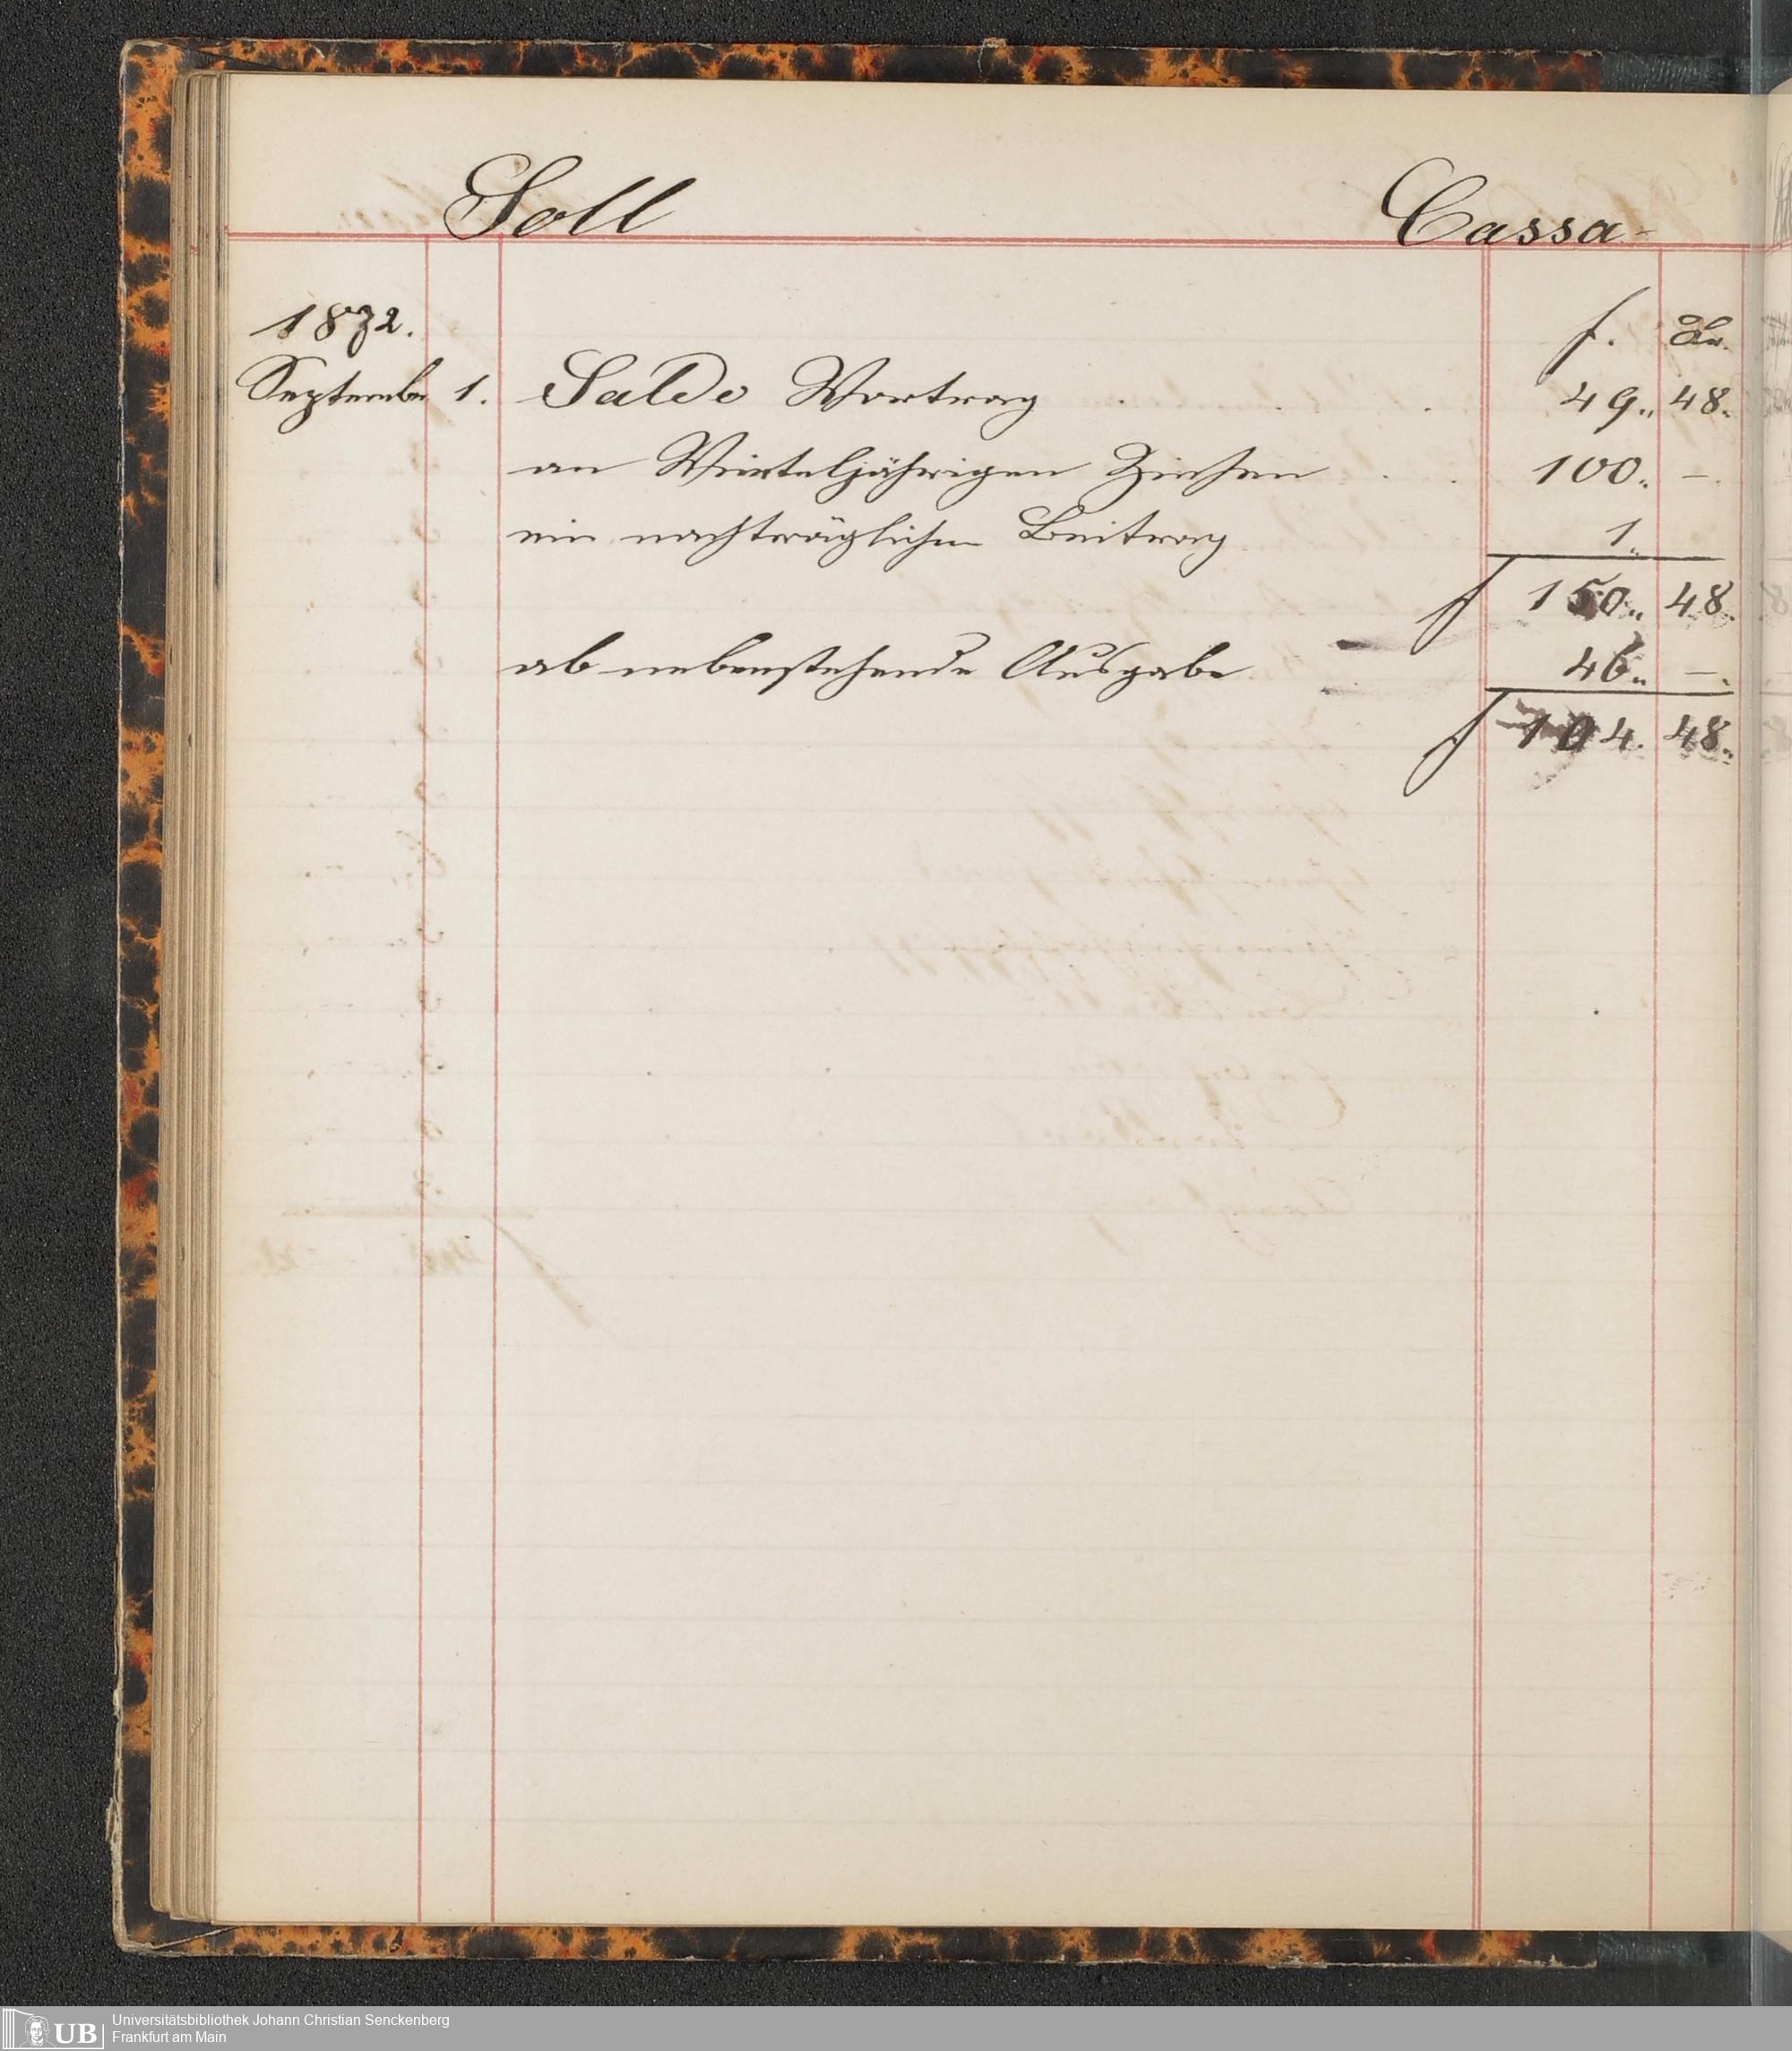 Soll Cassa-
1872. f. Xr.
September 1. Saldo Vortrag . . . 49.. 48.
an Vierteljährigen Zinsen . . 100.. -.
ein nachträglicher Beitrag 1..
f 150.. 48.
ab nebenstehende Ausgabe 46.. -.
f 104. 48.
UB
Universitätsbibliothek Johann Christian Senckenberg
Frankfurt am Main